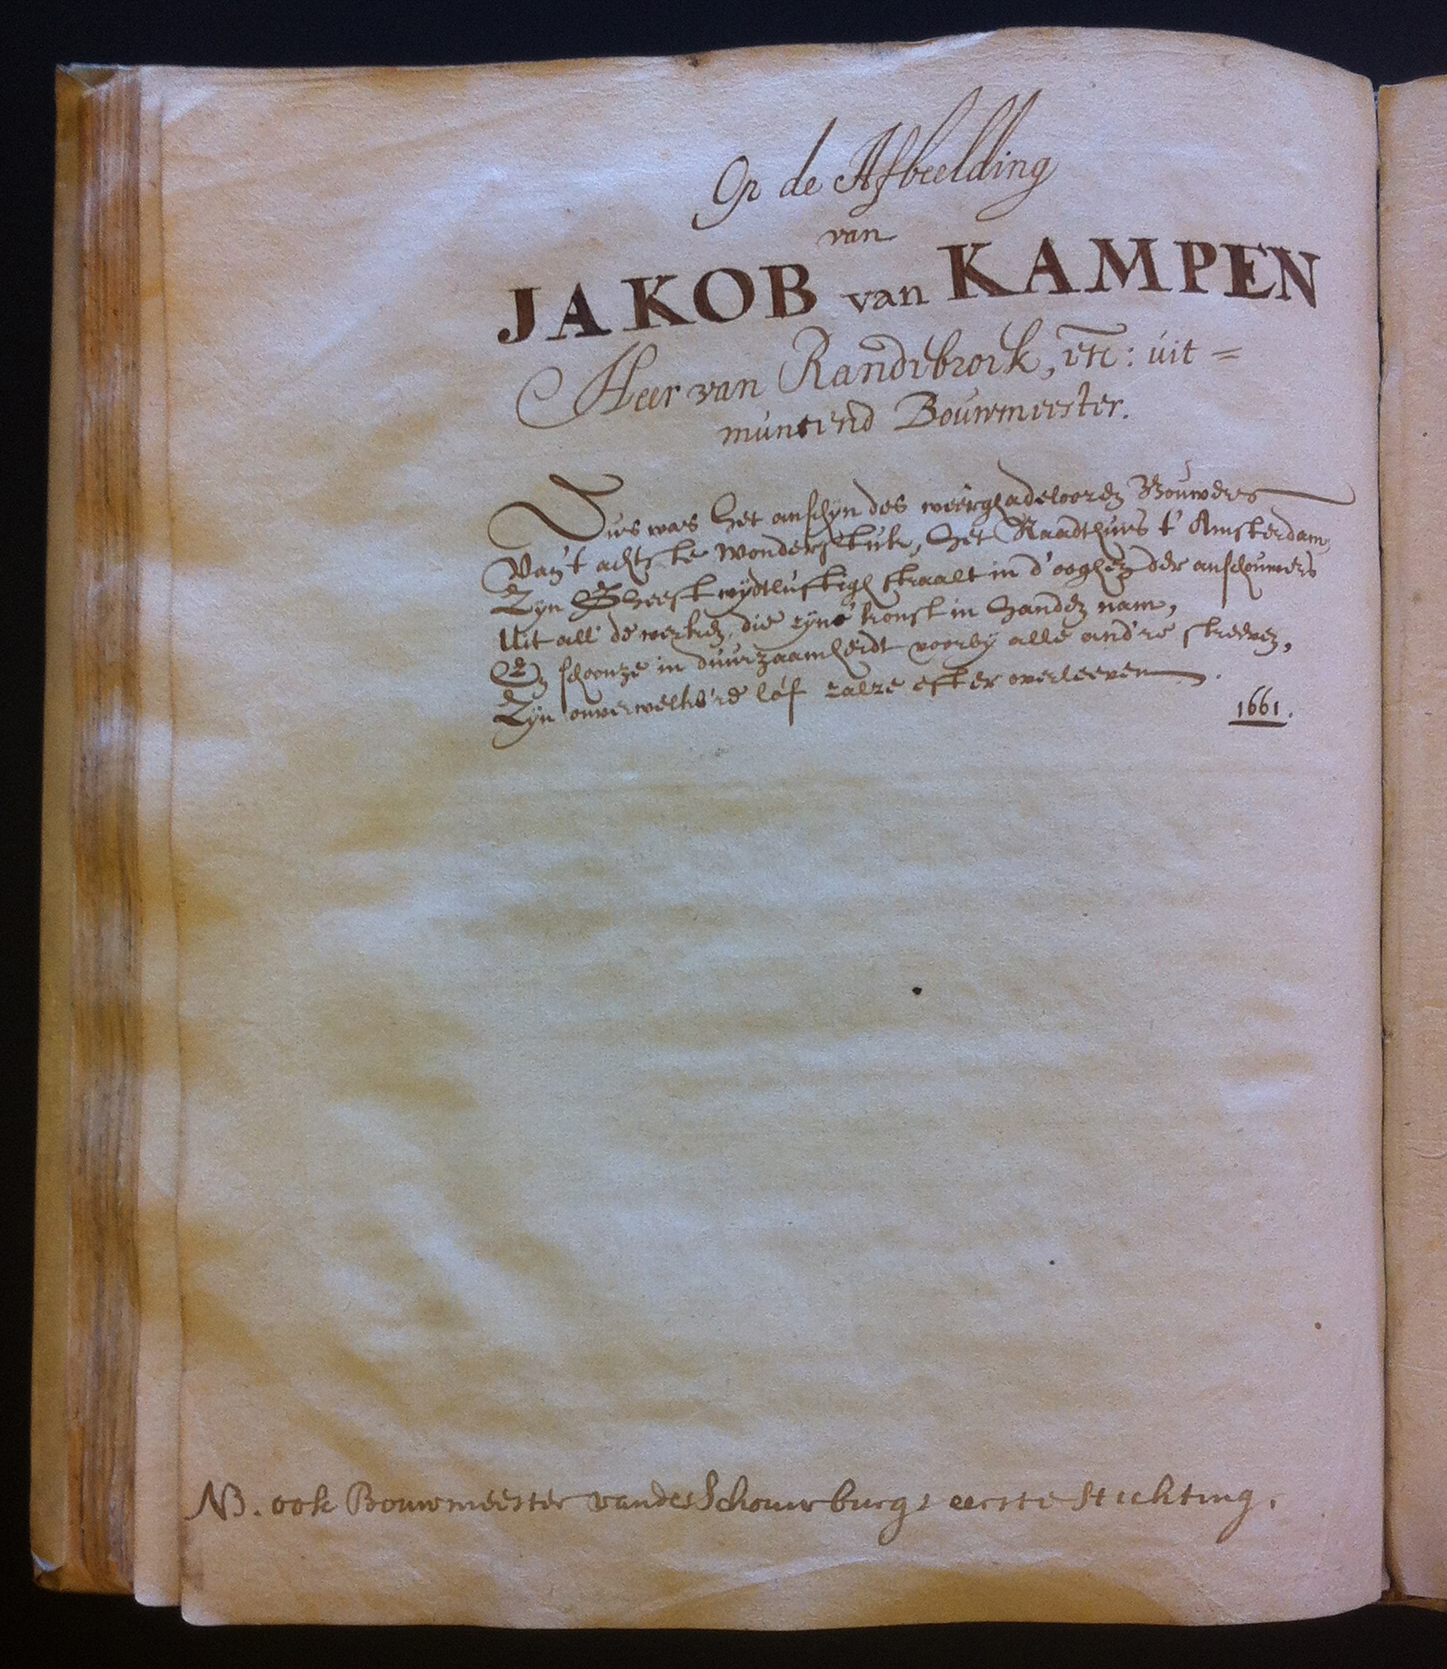 Op de Afbeelding
van
JAKOB van KAMPEN
Heer van Randebroek, etc: uit=
muntend Bouwmeester.
Dus was het anschyn des weêrghadeloozen Bouwders
Van 't achtste Wonderstuk, het Raadthuis t' Amsterdam,
Zyn Gheest wydtluftigh straalt in d'ooghen der anschouwers
Uit all' de werken, die zyne konst in handen nam,
En schoonze in duurzaamheidt voorby alle and're streeven,
Zyn onverwelkb're lof zalze echter overleeven.
1661.
NB. ook Bouwmeester vande Schouwburgs eerste Stichting.